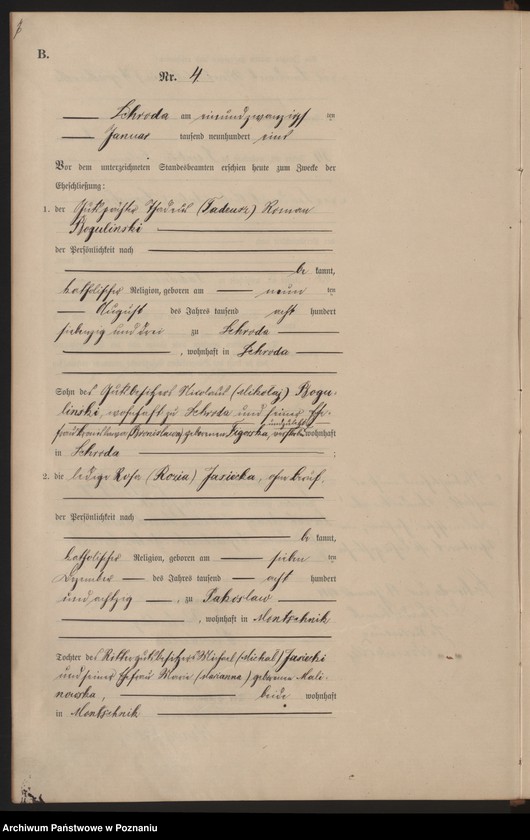 B.
Nr. 4.
Schroda am einundzwanzigsten
Januar tausend neunhundert eins
Vor dem unterzeichneten Standesbeamten erschien heute zum Zwecke der
Eheschließung:
1. der Gutspächter Thadeus (Tadeusz) Roman
Bogulinski
der Persönlichkeit nach
be kannt,
katholischer Religion, geboren am neun ten
August des Jahres tausend acht hundert
siebenzig und drei zu Schroda
, wohnhaft in Schroda
Sohn des Gutsbesitzers Nicolaus (Mikolaj) Bogu-
linski, wohnhaft zu Schroda und seiner Ehe-
frau (Bronislawa) geborenen wohnhaft
in Schroda ;
2. die ledige Rosa (Rozia) Jasiecka, ohne Beruf,
der Persönlichkeit nach
be kannt,
katholischer Religion, geboren am sieben ten
Dezember des Jahres tausend acht hundert
und achtzig , zu Pakoslaw
, wohnhaft in Montschnik
Tochter des Rittergutsbesitzers Michael (Michal) Jasiecki
und seiner Ehefrau Marie (Marianna) geborenen Mali-
nowska, beide wohnhaft
in Montschnik
Archiwum Państwowe w Poznaniu